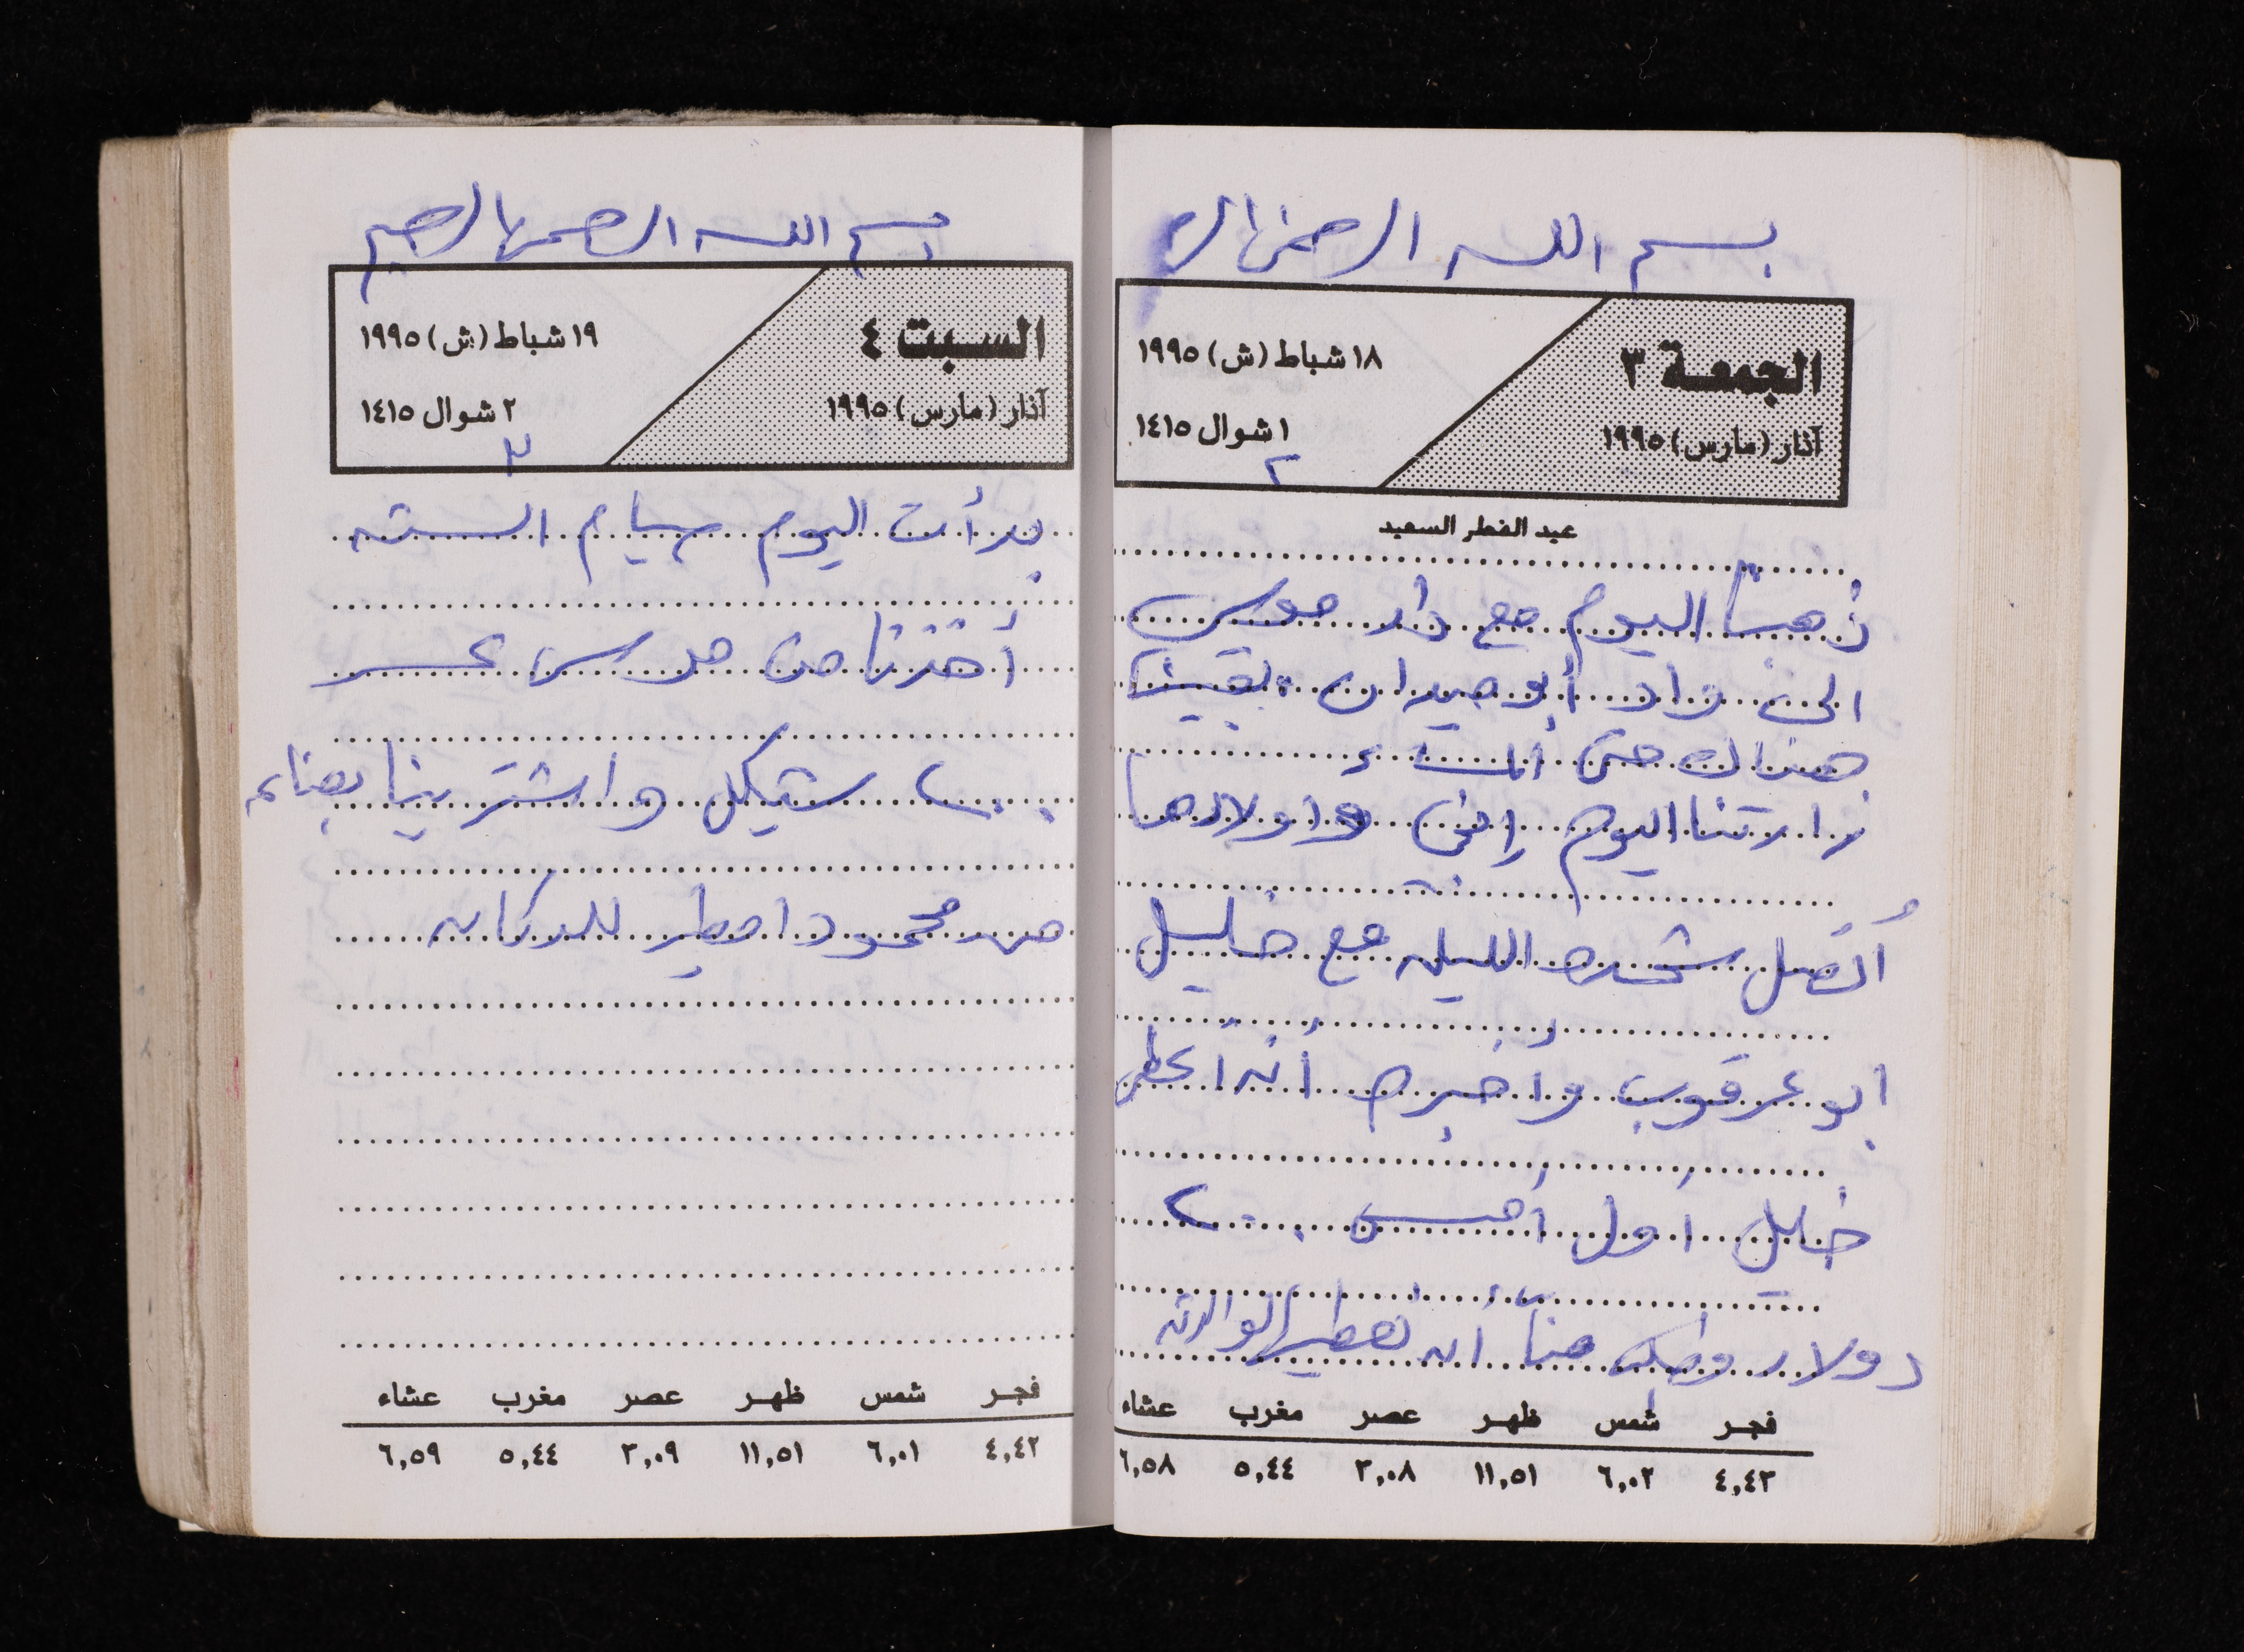 بسم الله الرحمن الر
الجمعة ٣
آذار (مارس) ١٩٩٥
١٨ شباط (ش) ١٩٩٥
١ شوال ١٤١٥
٢
عيد الفطر السعيد
ذهبنا اليوم مع دار موسى
الى واد أبو حميدان بقينا
هناك حتى المساء
زارتنا اليوم إختي واولادها
أتصل شحده الليله مع خليل
ابو عرقوب واخبره أنه اعطى
خليل اول أمس ٢٠٠
دولار وطلب منا أن نعطيها لوالدته
فجر شمس ظهر عصر مغرب عشاء
٤,٤٣ ٦,٠٢ ١١,٥١ ٣,٠٨ ٥,٤٤ ٦,٥٨
بسم الله الرحمن الرحيم
السبت ٤
آذار (مارس) ١٩٩٥
١٩ شباط (ش) ١٩٩٥
٢ شوال ١٤١٥
٣
بدأت اليوم صيام السته
أخذنا من موسى
٢٠٠ شيكل واشترينا بضاعه
من محمود امطير للدكان
فجر شمس ظهر عصر مغرب عشاء
٤,٤٢ ٦,٠١ ١١,٥١ ٣,٠٩ ٥,٤٤ ٦,٥٩